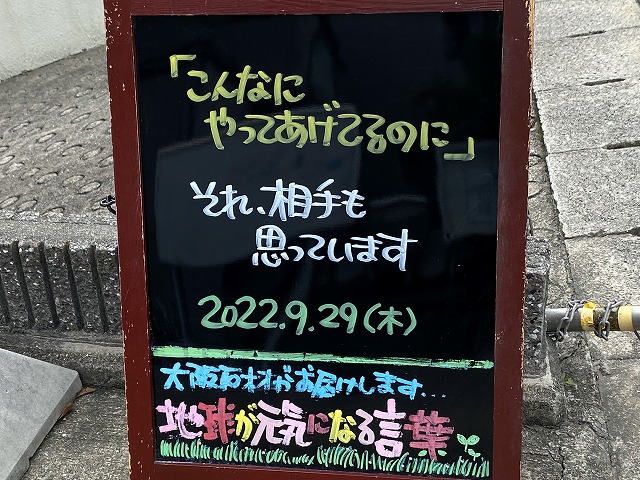 「こんなに
やってあげてるのに」
それ、相手も
思っています
2022.9.29(木)
大阪石材がお届けします...
地球が元気になる言葉